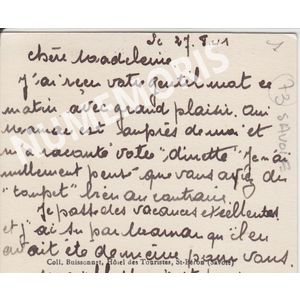 Le 27.8.
Chère Madeleine
J'ai reçu votre gentil mot ce
matin avec grand plaisir. Oui
maman est auprès de moi et
m'a raconté votre "dinette" Je n'ai
nullement pensé que vous ayez du
"toupet" bien au contraire.
Je passe des vacances excellentes
et j'ai su par Maman qu'il en
avait été de même pour vous.
Coll. Buissonnet, Hôtel des Touristes, St-Béron (Savoie)
1
(73) SAVOIE
NUMEMORIS